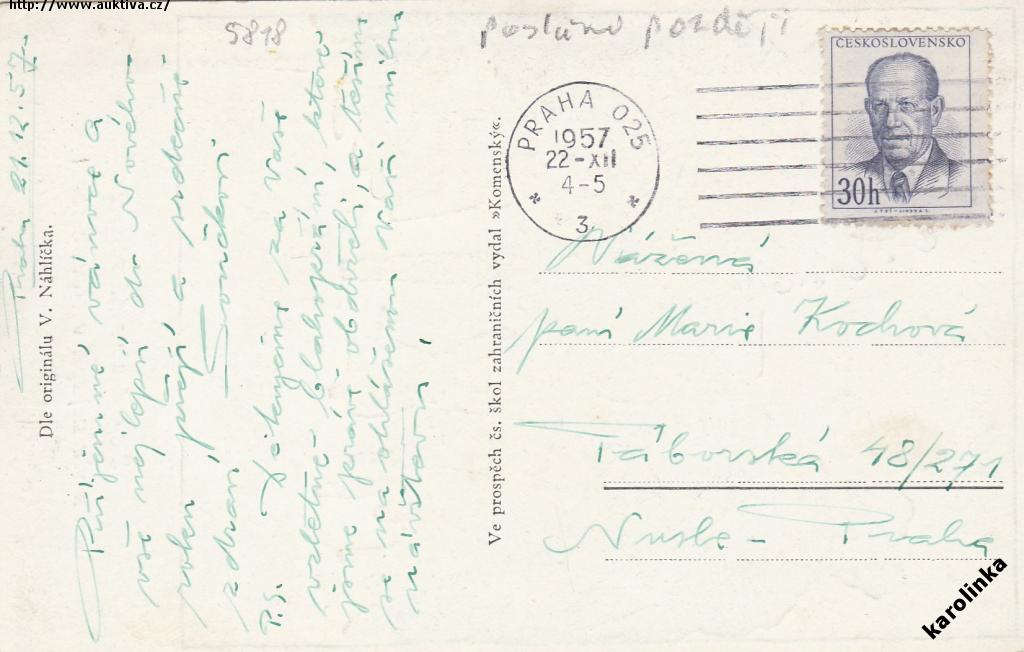 http://www.auktiva.cz/
5818
poslúno později
ČESKOSLOVENSKO
30h
PRAHA 025
1957
22-XII
4-5
3
Praha 21.12.57
Příjemné vánoce a
vše nejlepší do Nového
roku přejí a srdečně
zdraví Součkovi
P.S. Děkujeme za Vaše
vzletné blahopřání, které
jsme právě obdrželi, a těšíme
se na ohlášenou Vaši milou
návštěvu,
Dle originálu V. Náhlíčka.
Ve prospěch čs. škol zahraničních vydal »Komenský«.
Vážená
paní Marie Kochová
Táborská 48/271
Nusle - Praha
karolinka